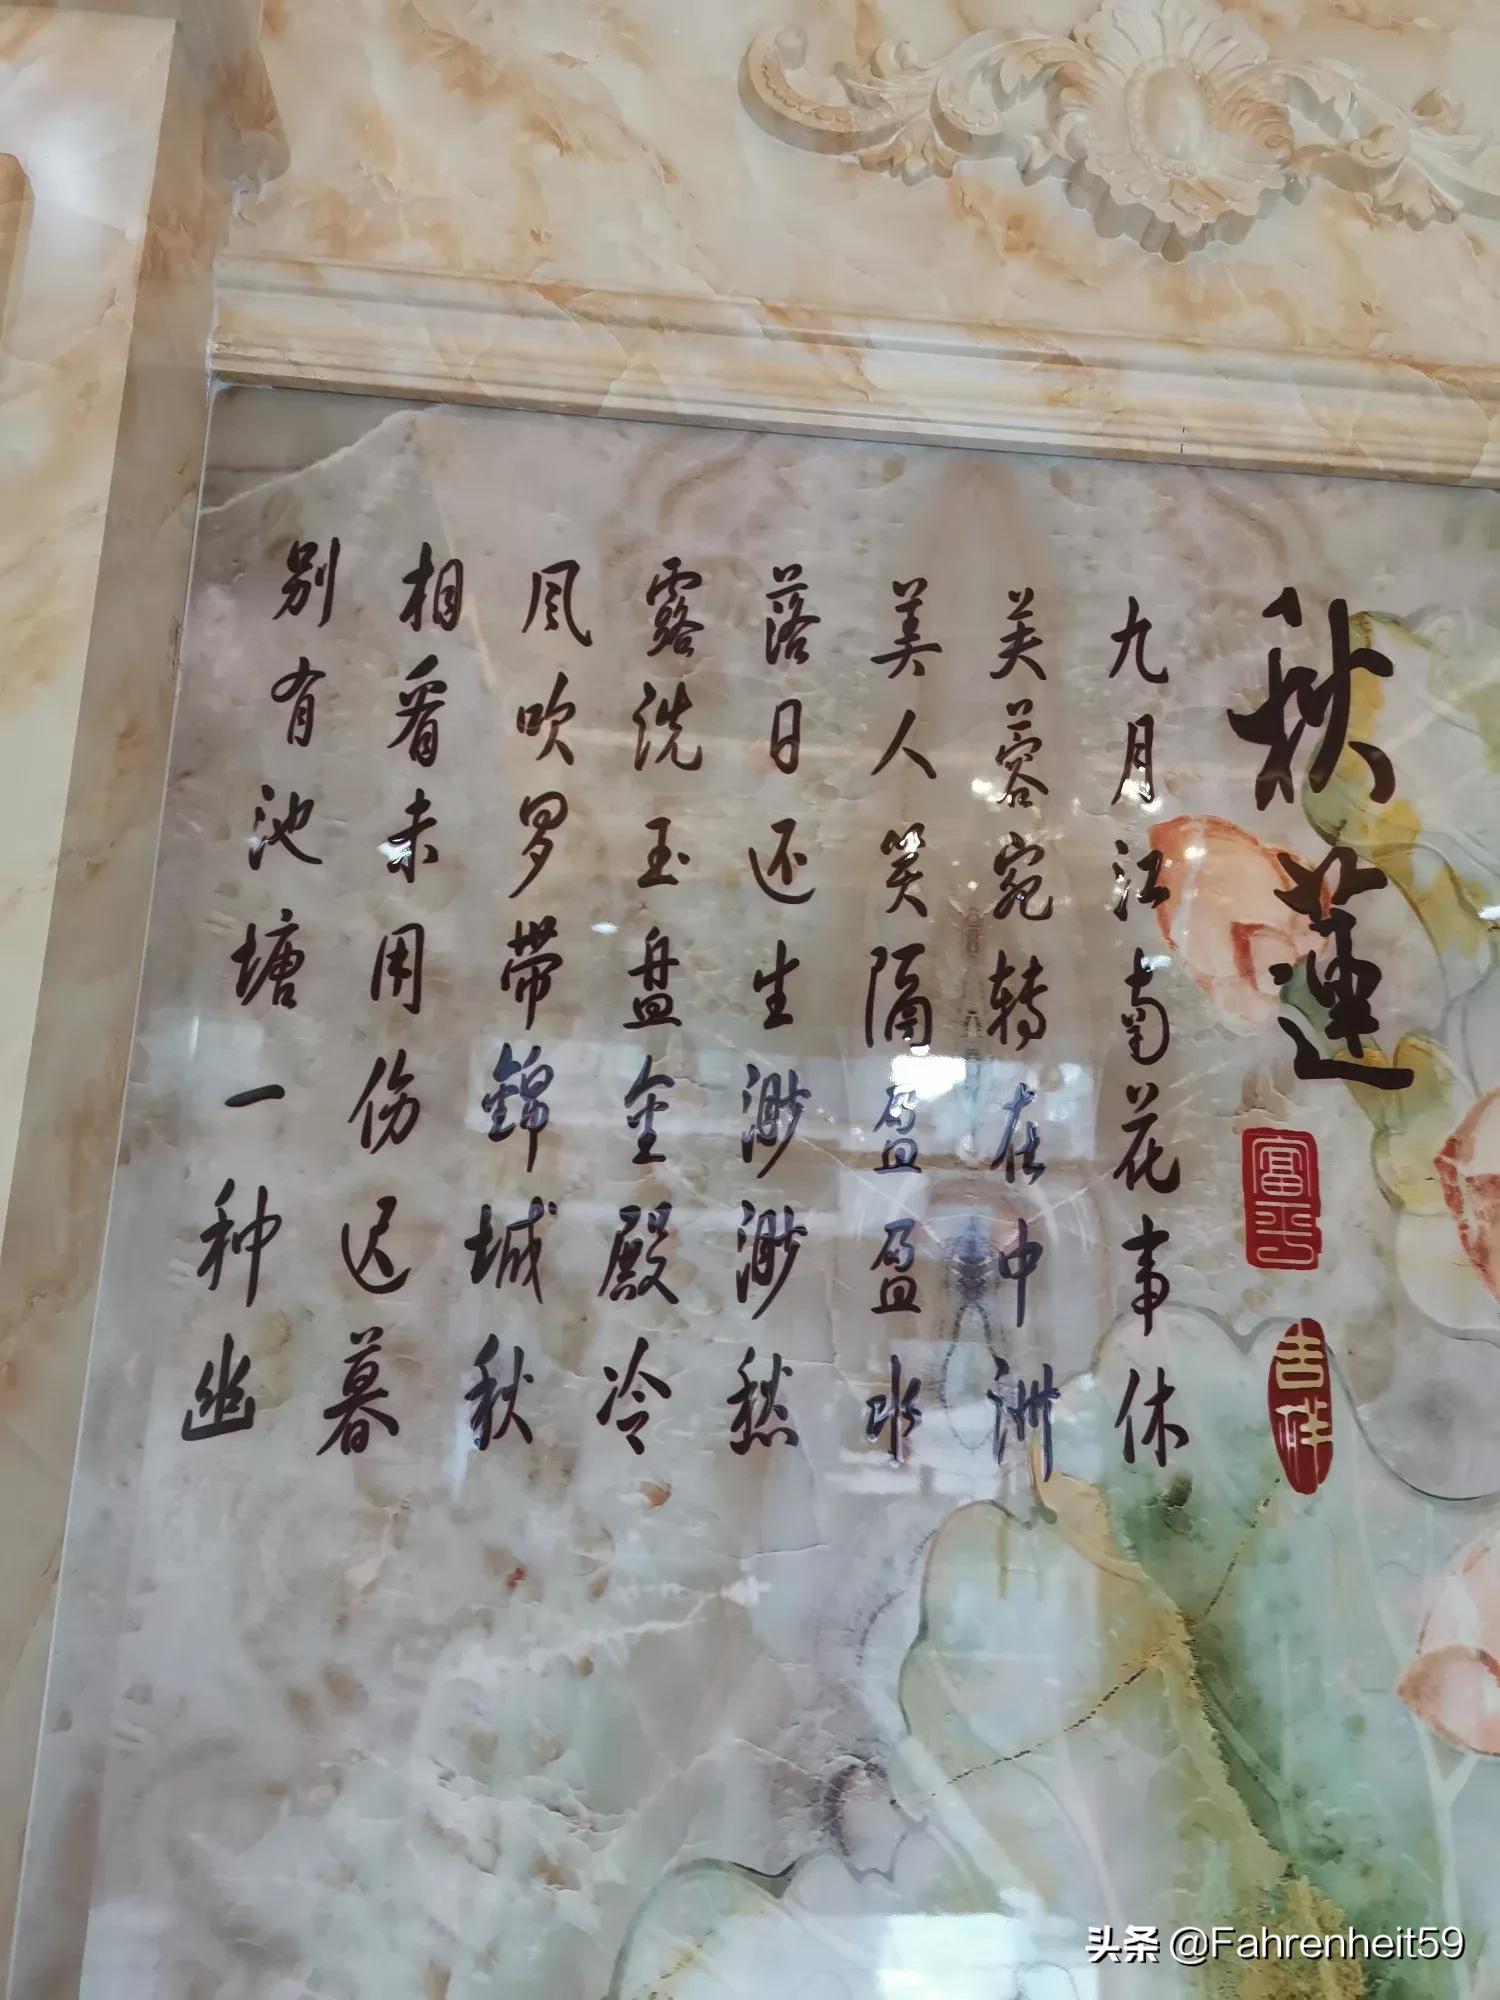 秋蓮
富平
吉祥
九月江南花事休
芙蓉宛转在中洲
美人笑隔盈盈水
落日还生渺渺愁
露洗玉盘金殿冷
风吹罗带錦城秋
相看未用伤迟暮
别有池塘一种幽
头条 @Fahrenheit59